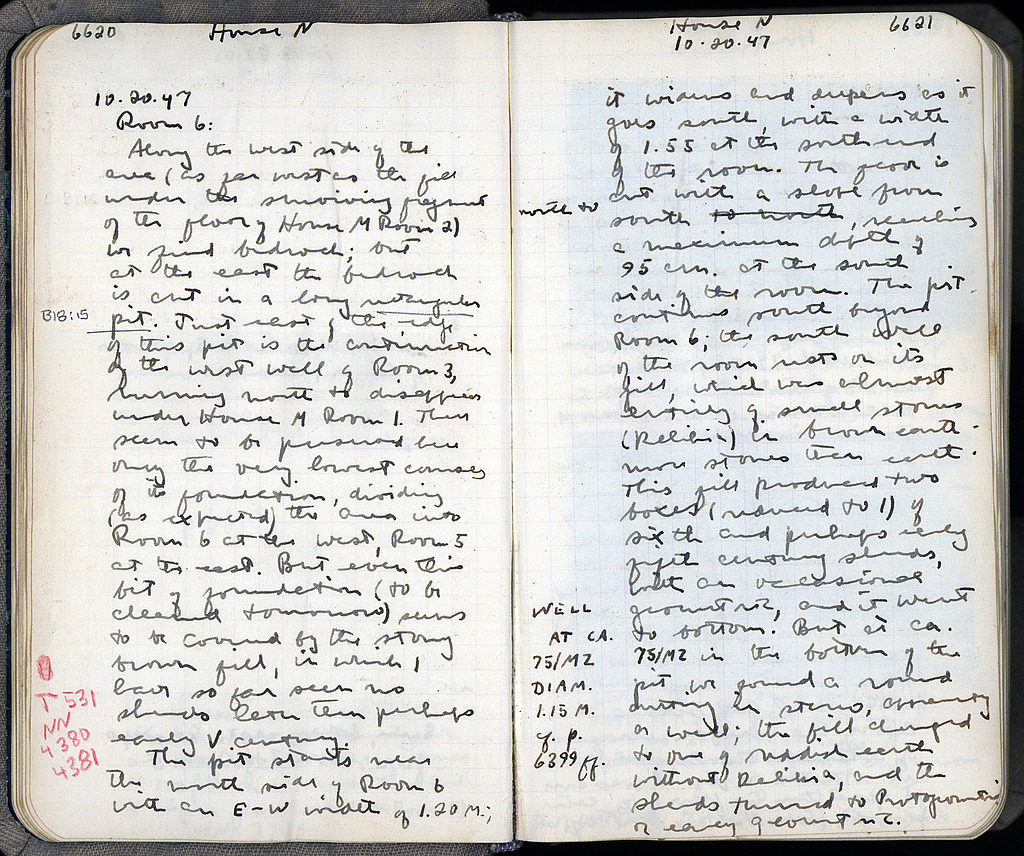 6620 House N
10.20.47
Room 6:
Along the west side of the
area (as far west as the fill
under the surviving fragment
of the floor of House M Room 2)
we find bedrock; but
at the east the bedrock
is cut in a long rectangular
B18:15
pit. Just east of the edge
of this pit is the continuation
of the west wall of Room 3,
running north to disappear
under House M Room 1. There
seem to be preserved here
only the very lowest courses
of its foundation, dividing
(as expected) the area into
Room 6 at the west, Room 5
at the east. But even this
bit of foundation (to be
cleaned tomorrow) seems
to be covered by the stony
brown fill, in which I
have so far seen no
sherds later than perhaps
early V century.
B
T 531
NN
4380
4381
The pit starts near
the north side of Room 6
with an E-W width of 1.20 M;
House N 6621
10.20.47
it widens and deepens as it
goes south, with a width
of 1.55 at the south end
of the room. The floor is
cut with a slope from
north to
south to north, reaching
a maximum depth of
95 cm. at the south
side of the room. The pit
continues south beyond
Room 6; the south wall
of the room rests on its
fill, which was almost
entirely of small stones
(Relibia) in brown earth.
more stones than earth.
This fill produced two
boxes (reduced to 1) of
sixth and perhaps early
fifth century sherds,
with an occasional
geometric, and it went
to bottom. But at ca.
75/MZ in the bottom of the
pit we found a round
cutting in stereo, apparently
a well; the fill changed
to one of reddish earth
without Relibia, and the
sherds turned to Protogeometric
or early geometric.
WELL
AT CA.
75/MZ
DIAM.
1.15 M.
cf. p.
6399 ff.